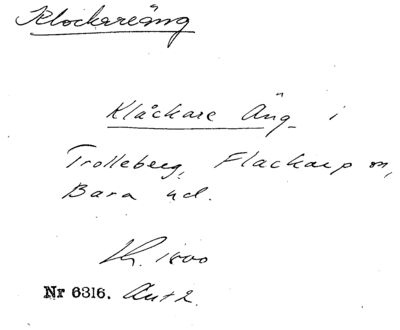 Klockareäng
Klåckare Äng i
Trolleberg, Flackarp sn,
Bara hd.
1800
Nr 6316. Ant 2.